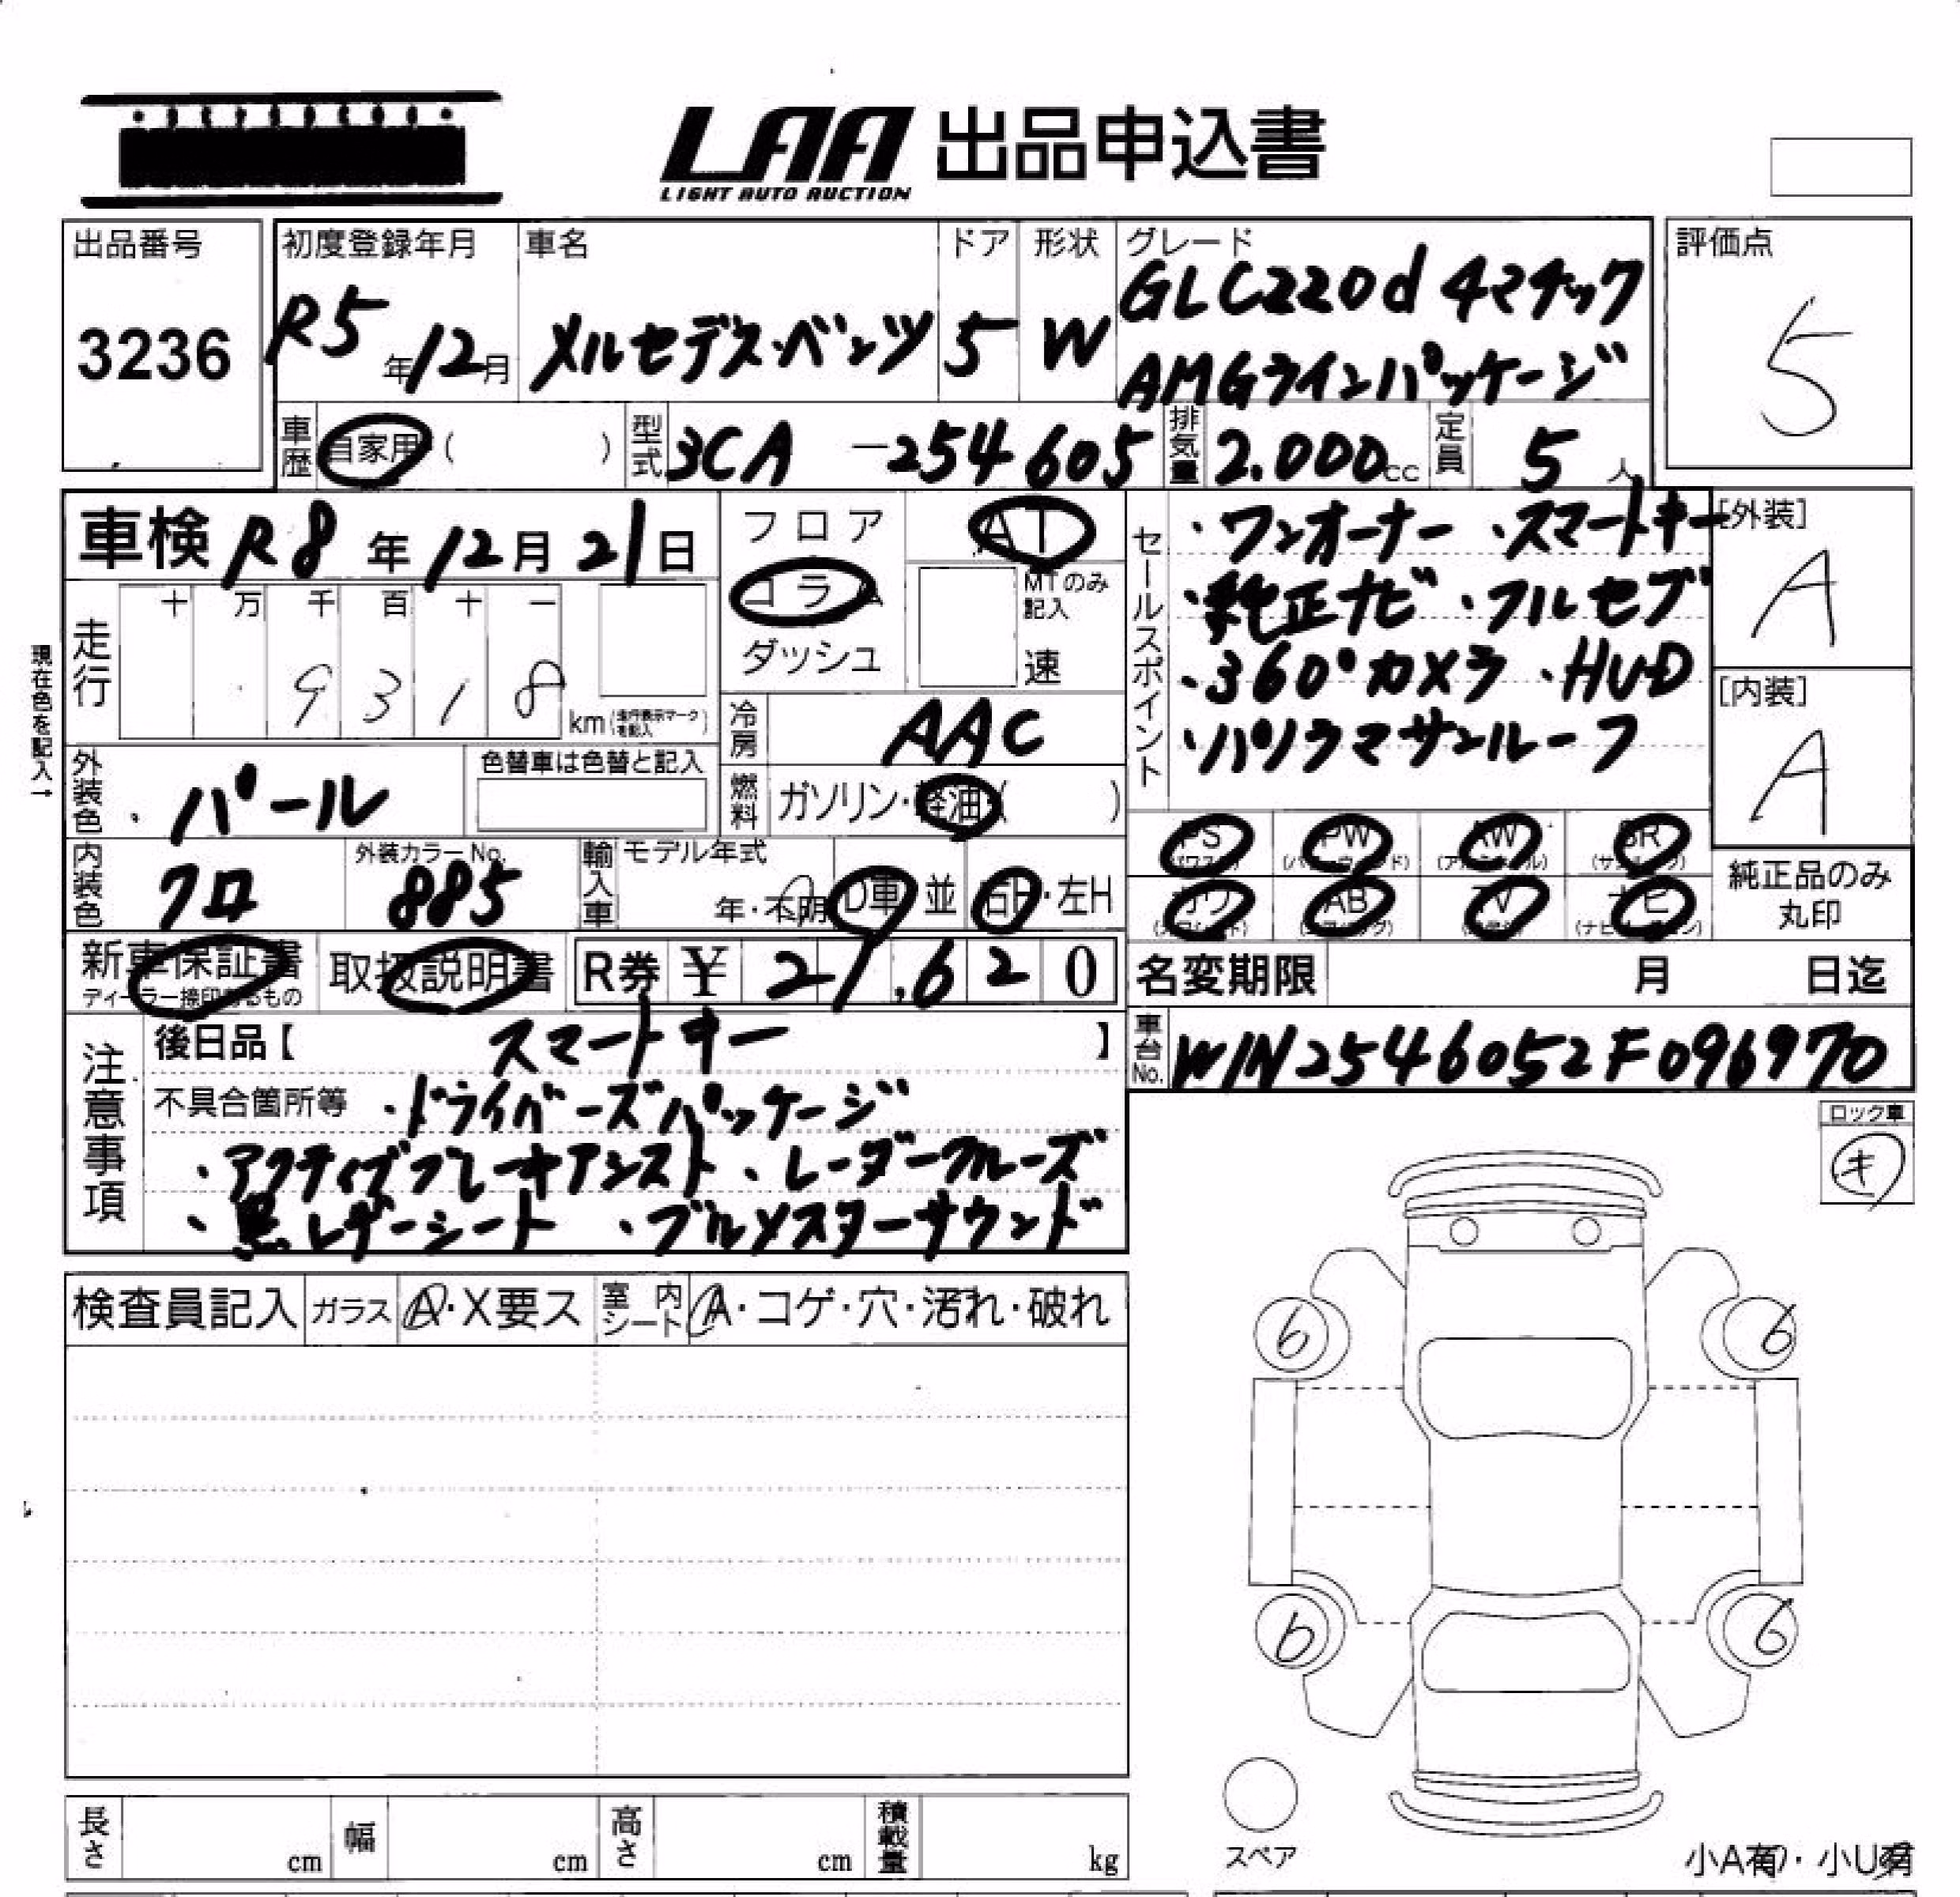 LAA 出品申込書
LIGHT AUTO AUCTION
出品番号
3236
初度登録年月
R5年12月
車名
メルセデス・ベンツ
ドア
5
形状
W
グレード
GLC220d 4マチック
AMGラインパッケージ
評価点
5
車歴
自家用 ( )
型式
3CA -254605
排気量
2.000cc
定員
5人
車検 R8年12月21日
走行
十 万 千 百 十 一
9 3 1 8
km (走行表示マークを記入)
現在色を記入→
外装色
パール
色替車は色替と記入
内装色
クロ
外装カラーNo.
885
フロア
コラム
ダッシュ
AT
MTのみ記入
速
冷房
AAC
燃料
ガソリン・軽油 ( )
輸入車
モデル年式
年・不明
D車 並
右H・左H
セールスポイント
・ワンオーナー ・スマートキー
・純正ナビ ・フルセブ
・360°カメラ ・HUD
・パノラマサンルーフ
[外装]
A
[内装]
A
PS PW AW SR
(パワステ) (パワーウィンド) (アルミホイル) (サンルーフ)
カワ AB TV ナビ
純正品のみ
丸印
新車保証書
ディーラー捺印有るもの
取扱説明書
R券 ¥ 29,620
名変期限 月 日迄
車台No.
WIN2546052F096970
注意事項
後日品【 スマートキー 】
不具合箇所等 ・ドライバーズパッケージ
・アクティブブレーキアシスト ・レーダークルーズ
・黒レザーシート ・ブルメスターサウンド
ロック車
キ
検査員記入
ガラス
A・X要ス
室内シート
A・コゲ・穴・汚れ・破れ
6
6
6
6
スペア
小A有・小U有
長さ cm
幅 cm
高さ cm
積載量 kg